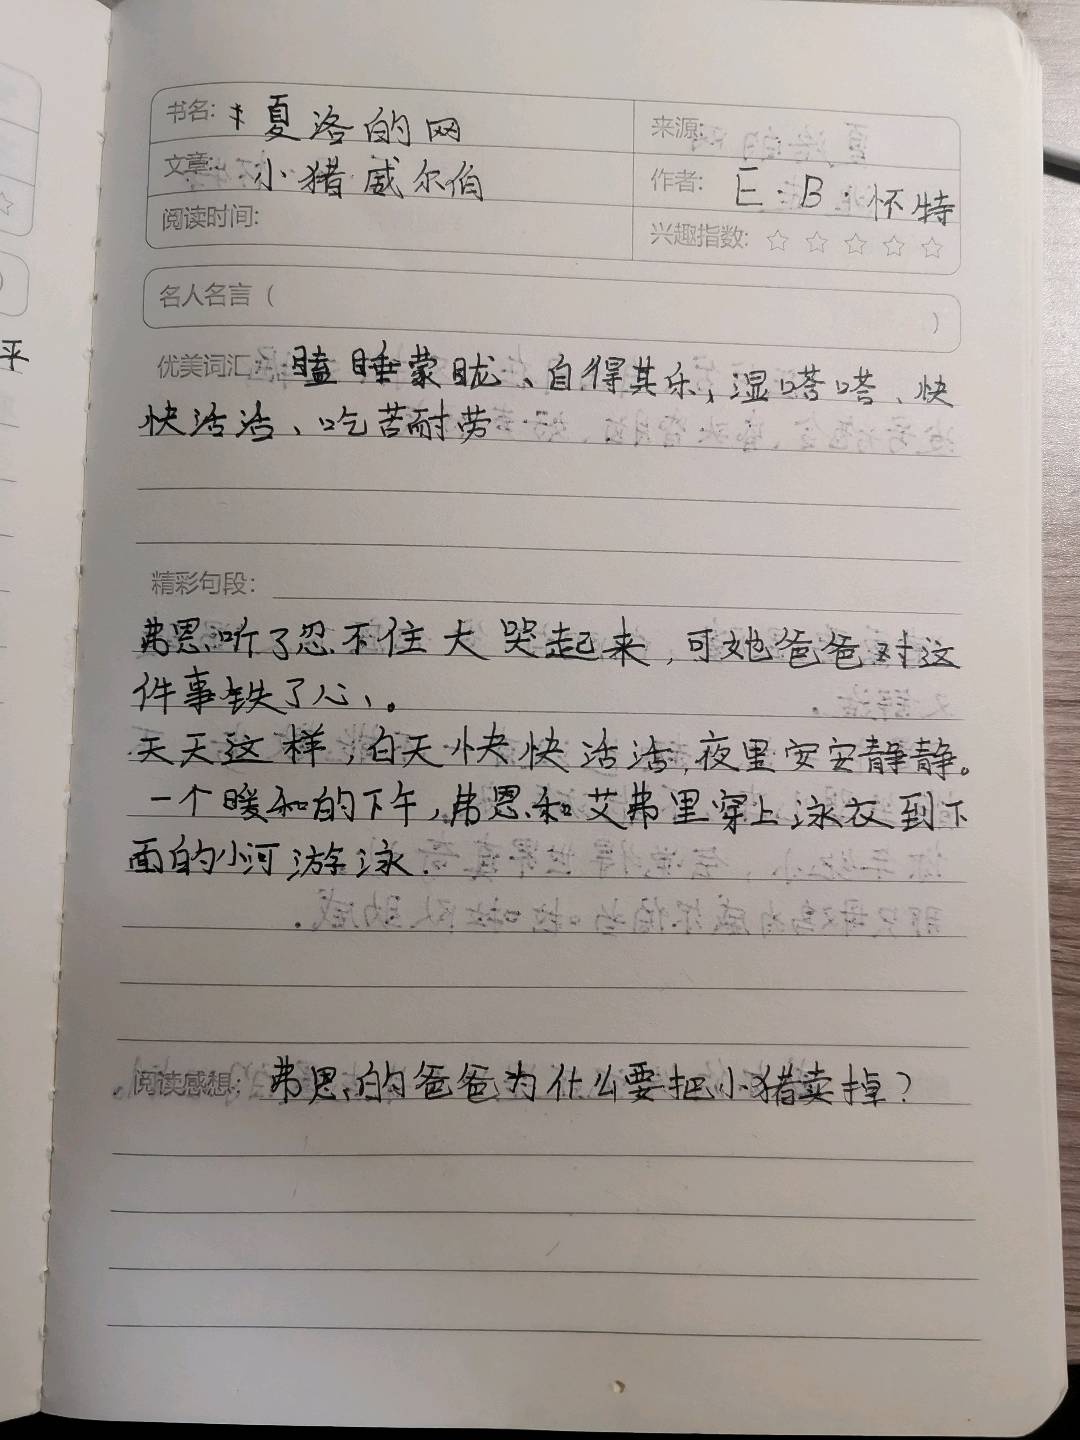 书名: 夏洛的网
来源:
文章: 小猪威尔伯
作者: E·B·怀特
阅读时间:
兴趣指数: ☆ ☆ ☆ ☆ ☆
名人名言（ ）
优美词汇: 瞌睡蒙眬、自得其乐，湿嗒嗒、快
快活活、吃苦耐劳
精彩句段:
弗恩听了忍不住大哭起来，可她爸爸对这
件事铁了心、。
天天这样，白天快快活活，夜里安安静静。
一个暖和的下午，弗恩和艾弗里穿上泳衣到下
面的小河游泳.
阅读感想: 弗恩的爸爸为什么要把小猪卖掉？
平